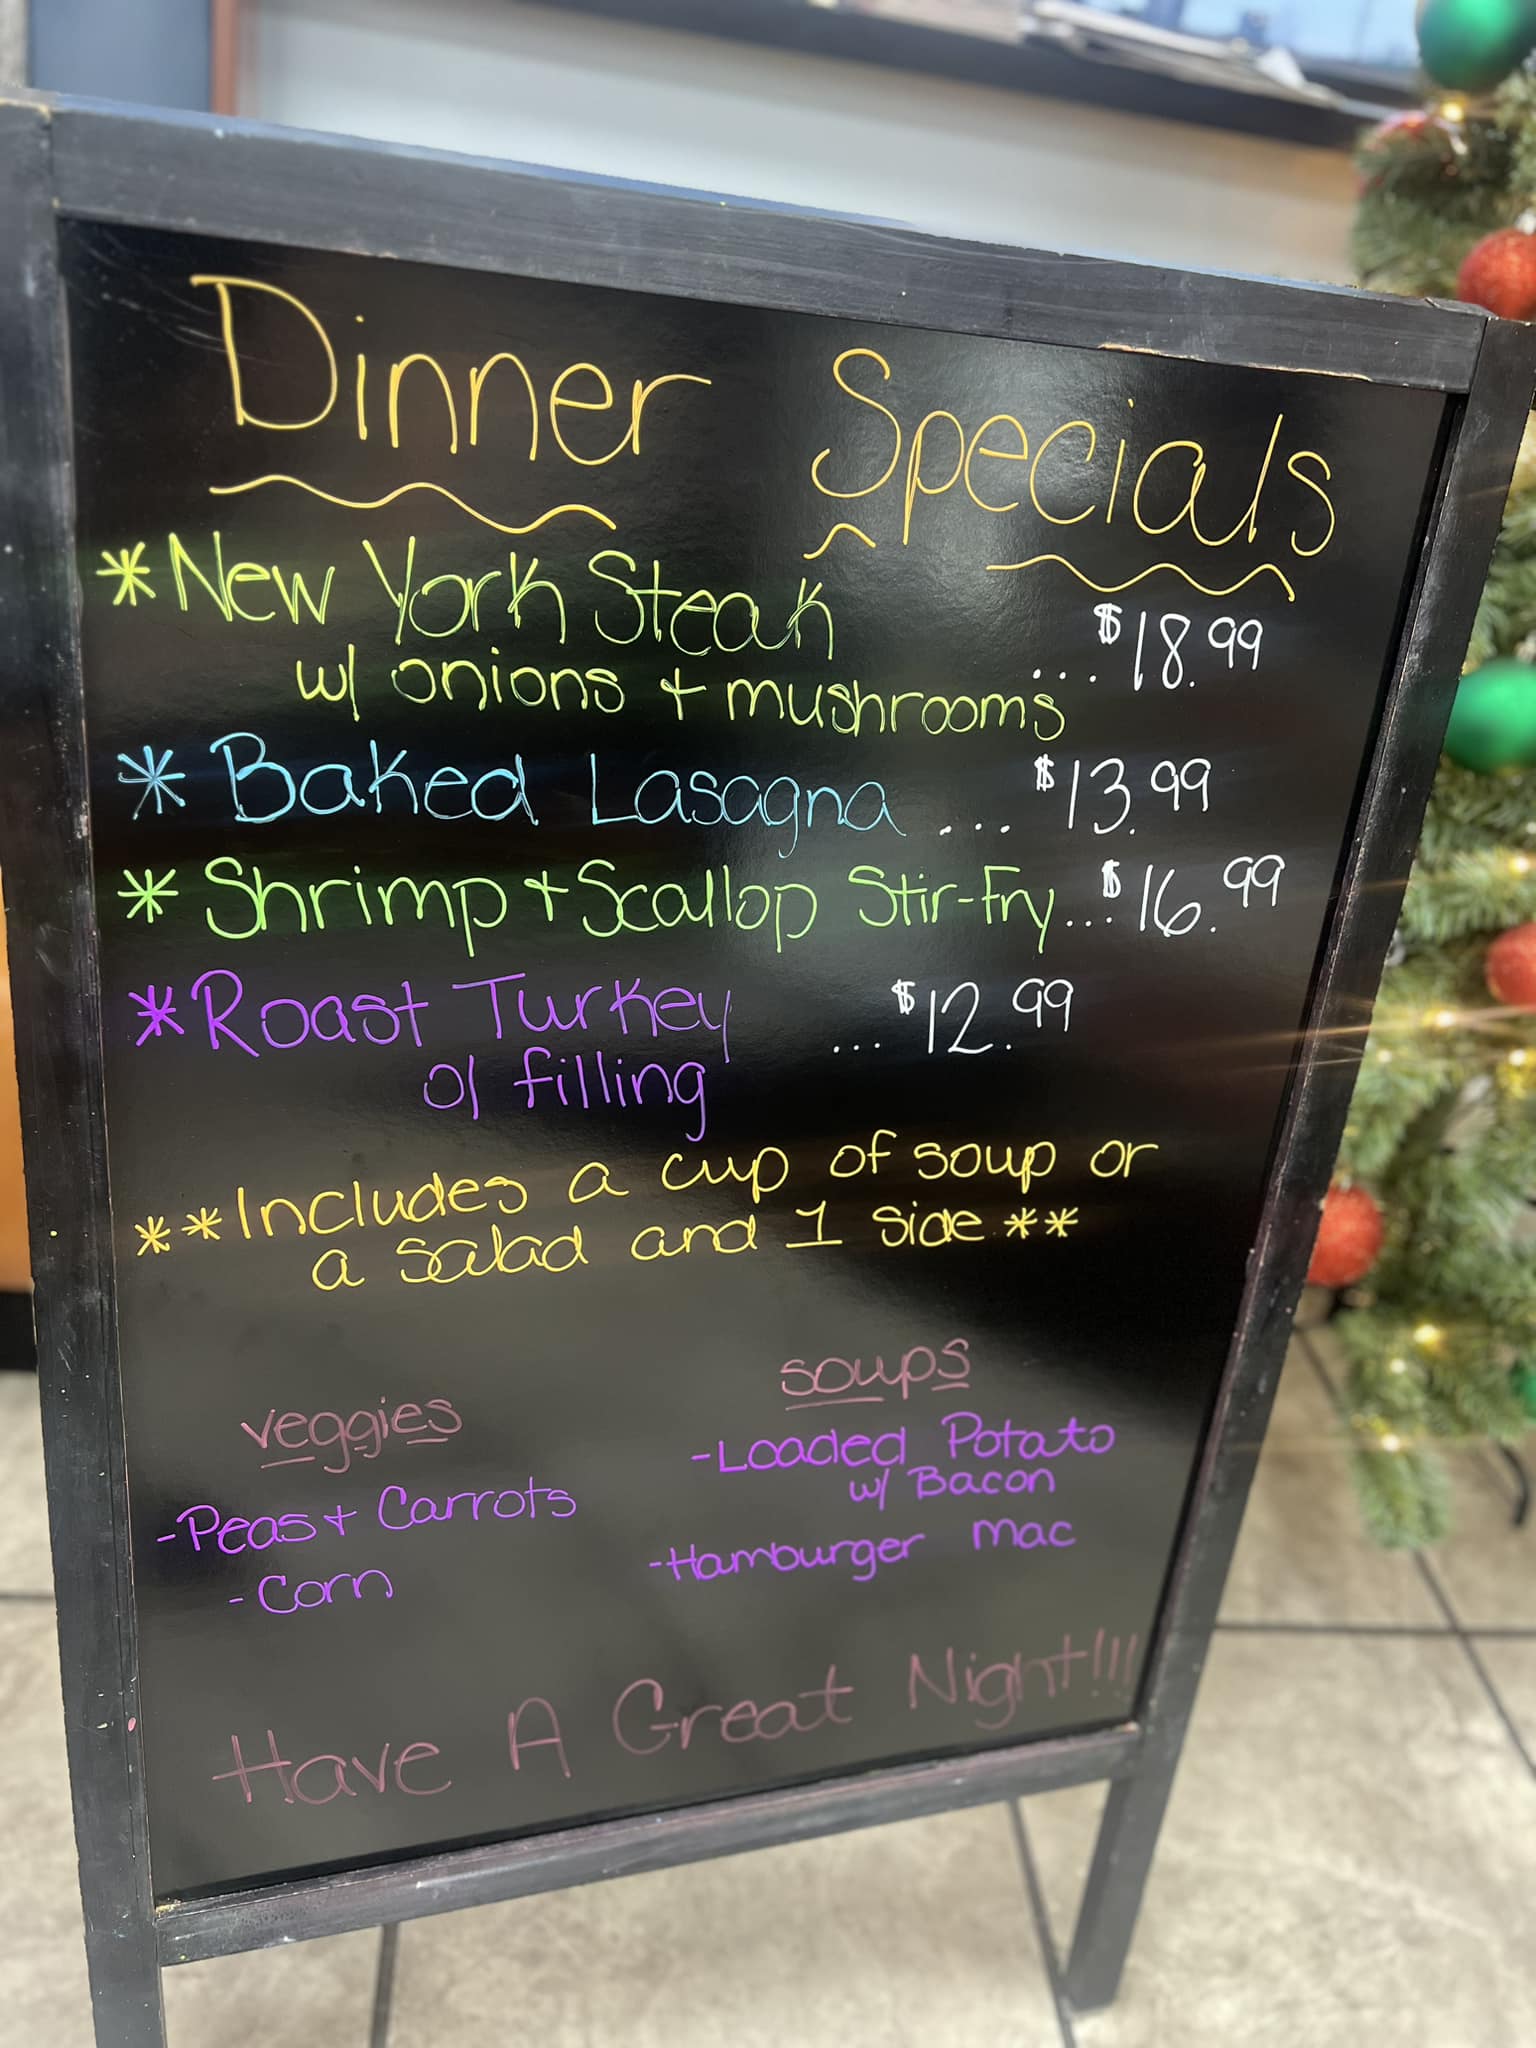 Dinner Specials
*New York Steak
w/ onions + mushrooms ... $18.99
*Baked Lasagna ... $13.99
*Shrimp + Scallop Stir-Fry... $16.99
*Roast Turkey ... $12.99
o/ filling
**Includes a cup of soup or
a salad and 1 side.**
veggies
-Peas + Carrots
-Corn
soups
-Loaded Potato
w/ Bacon
-Hamburger Mac
Have A Great Night!!!